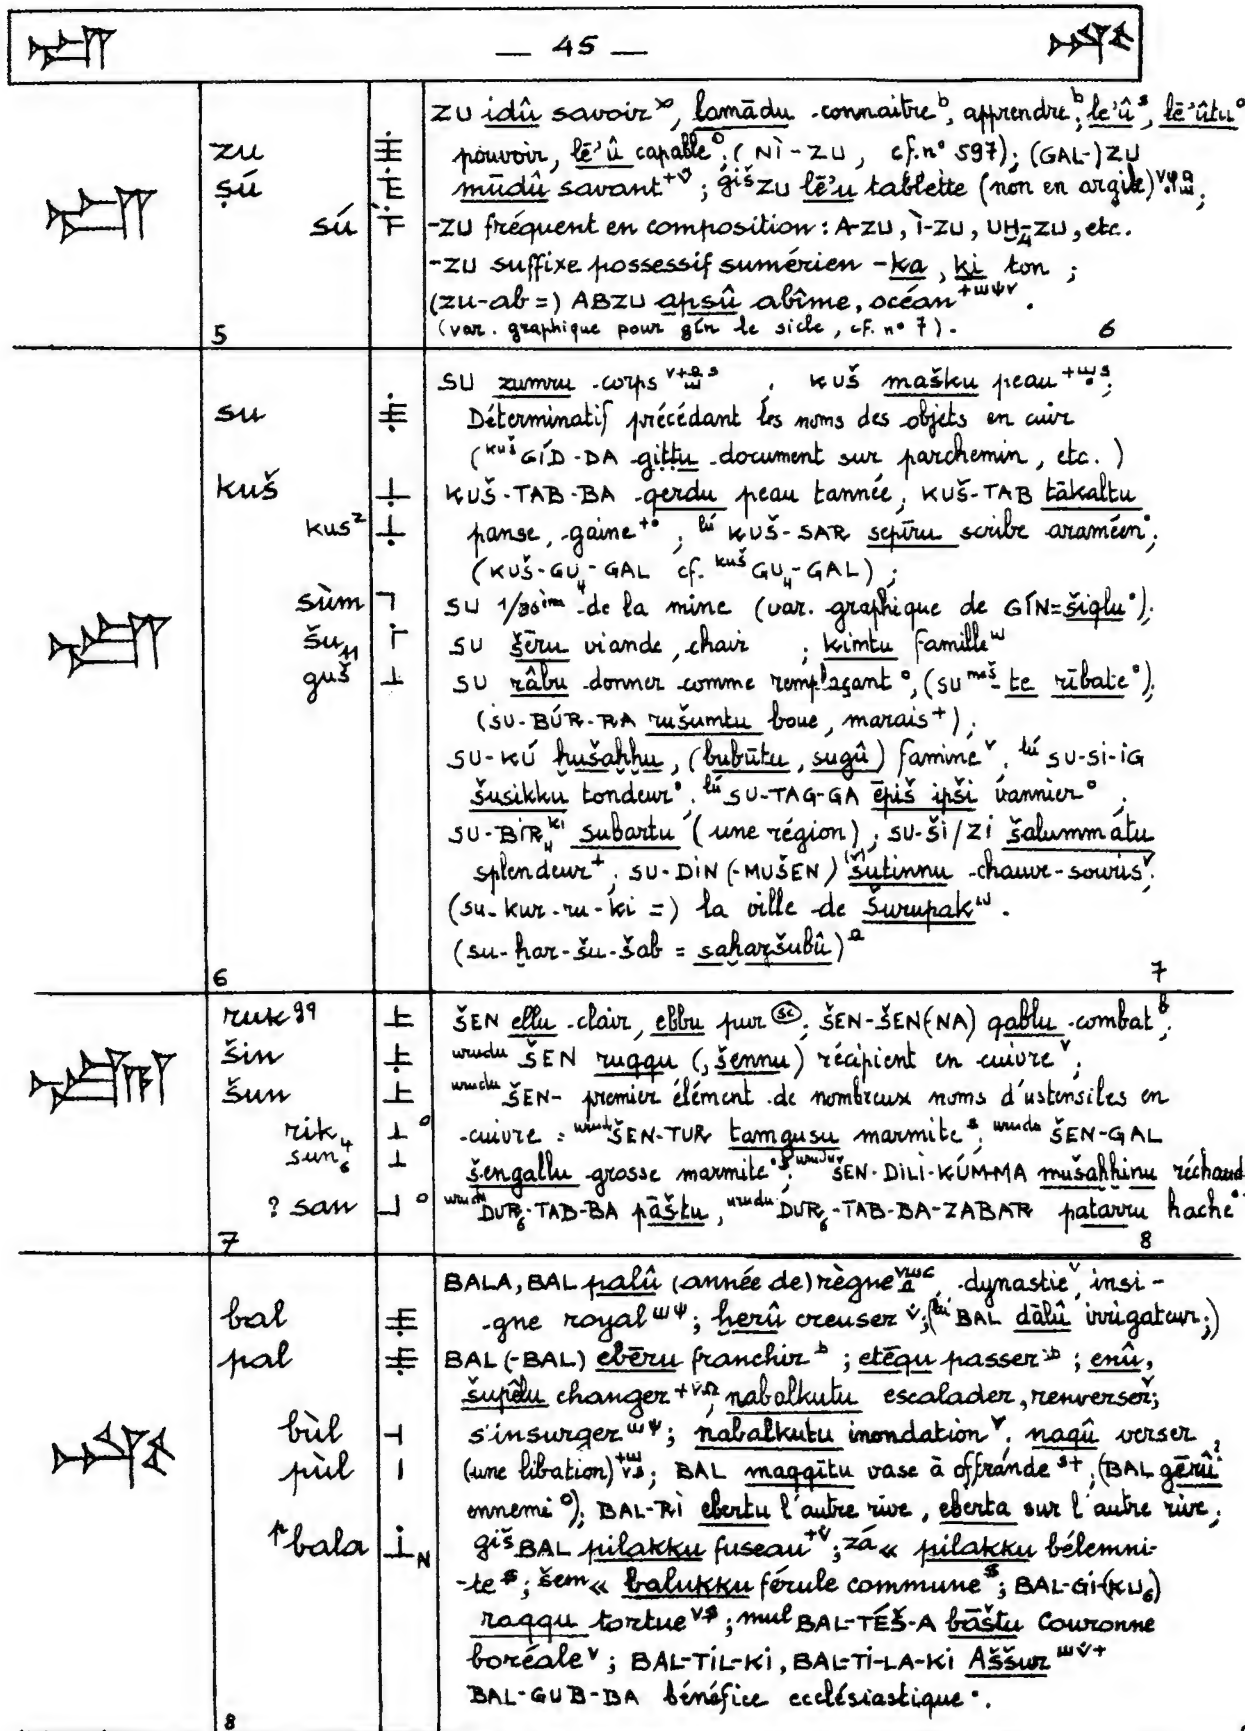 — 45 —
ZU idû savoir, lamādu connaitre, apprendre; le'û, lē'ûtu
zu pouvoir, lē'û capable; (NÌ-ZU, cf. n° 597); (GAL-)ZU
ṣú mūdû savant; giš ZU lē'u tablette (non en argile);
sú -ZU fréquent en composition: A-ZU, Ì-ZU, UḪ₄-ZU, etc.
-ZU suffixe possessif sumérien -ka, ki ton;
(zu-ab =) ABZU apsû abîme, océan.
5 (var. graphique pour gín le sicle, cf. n° 7). 6
SU zumru corps, KUŠ mašku peau;
su Déterminatif précédant les noms des objets en cuir
(kuš GÍD-DA gittu document sur parchemin, etc.)
kuš KUŠ-TAB-BA qerdu peau tannée, KUŠ-TAB tākaltu
kus² panse, gaine; lú KUŠ-SAR sepīru scribe araméen;
(KUŠ-GU₄-GAL cf. kuš GU₄-GAL);
sùm SU 1/30ième de la mine (var. graphique de GÍN=šiqlu);
šu₁₁ SU šēru viande, chair; kimtu famille
guš SU râbu donner comme remplaçant, (SU meš-te rībate);
(SU-BÚR-RA rušumtu boue, marais);
SU-KÚ ḫušaḫḫu, (bubūtu, sugû) famine, lú SU-SI-IG
šusikku tondeur, lú SU-TAG-GA ēpiš ipši vannier,
SU-BIR₄ ki subartu (une région); SU-ŠI/ZI šalummātu
splendeur, SU-DIN (-MUŠEN) šutinnu chauve-souris.
(su-kur-ru-ki =) la ville de Šurupak.
(su-ḫar-šu-šab = saḫaršubû)
6 7
ruk⁹⁹ ŠEN ellu clair, ebbu pur, ŠEN-ŠEN(NA) qablu combat,
šin urudu ŠEN ruqqu (, šennu) récipient en cuivre;
šun urudu ŠEN- premier élément de nombreux noms d'ustensiles en
rik₄ cuivre: urudu ŠEN-TUR tamgusu marmite, urudu ŠEN-GAL
sun₆ šengallu grosse marmite, urudu ŠEN-DILI-KÚM-MA mušaḫḫinu réchaud
? san urudu DUR₆-TAB-BA pāštu, urudu DUR₆-TAB-BA-ZABAR patarru hache
7 8
BALA, BAL palû (année de) règne, dynastie, insi-
bal gne royal; ḫerû creuser; (lú BAL dālû irrigateur;)
pal BAL(-BAL) ebēru franchir; etēqu passer; enû,
šupêlu changer, nabalkutu escalader, renverser;
bùl s'insurger; nabalkutu inondation, naqû verser
pùl (une libation); BAL maqqītu vase à offrande, (BAL gērû
ennemi); BAL-RI ebertu l'autre rive, eberta sur l'autre rive,
bala giš BAL pilakku fuseau; zá « pilakku bélemni-
-te; šem « balukku férule commune; BAL-GI-(KU₆)
raqqu tortue; mul BAL-TÉŠ-A bāštu Couronne
boréale; BAL-TIL-KI, BAL-TI-LA-KI Aššur
BAL-GUB-BA bénéfice ecclésiastique.
8